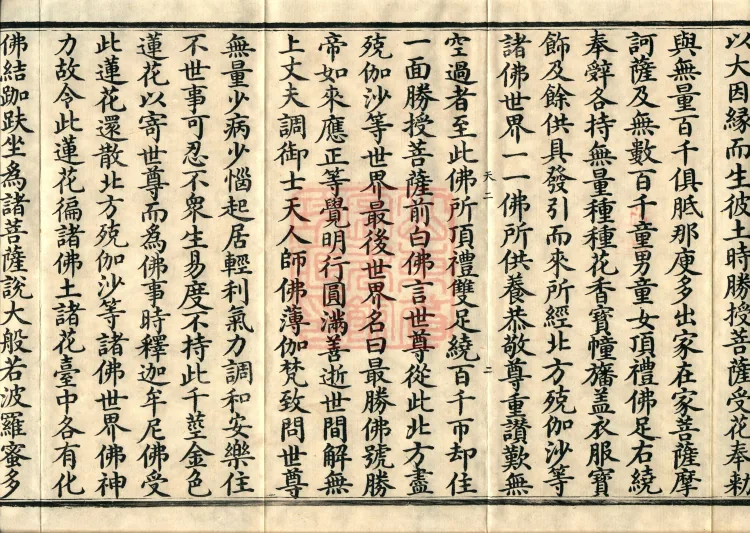 以大因緣而生彼土時勝授菩薩受花奉勅
與無量百千俱胝那庾多出家在家菩薩摩
訶薩及無數百千童男童女頂禮佛足右繞
奉辤各持無量種種花香寶幢旛盖衣服寶
飾及餘供具發引而來所經北方殑伽沙等
諸佛世界一一佛所供養恭敬尊重讃歎無
天二
二
空過者至此佛所頂禮雙足繞百千帀却住
一面勝授菩薩前白佛言世尊從此北方盡
殑伽沙等世界最後世界名曰最勝佛號勝
帝如來應正等覺明行圓滿善逝世間解無
上丈夫調御士天人師佛薄伽梵致問世尊
無量少病少惱起居輕利氣力調和安樂住
不世事可忍不衆生易度不持此千莖金色
蓮花以寄世尊而為佛事時釋迦牟尼佛受
此蓮花還散北方殑伽沙等諸佛世界佛神
力故令此蓮花徧諸佛土諸花臺中各有化
佛結跏趺坐為諸菩薩說大般若波羅蜜多